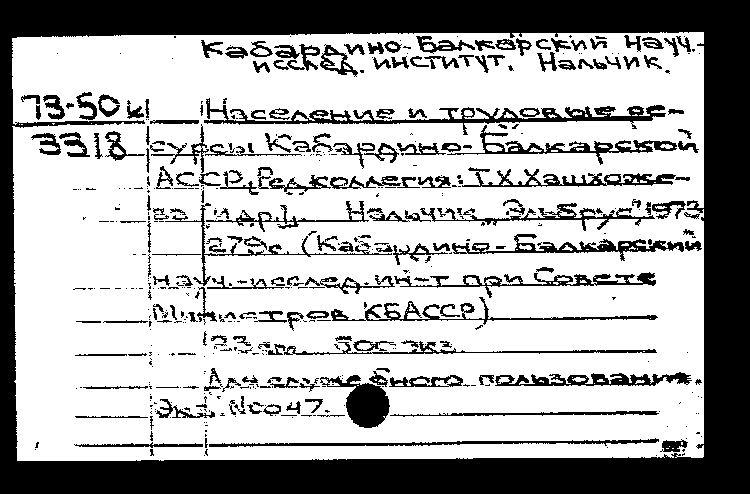 Кабардино-Балкарский Науч.-
исслед. институт. Нальчик.
73-50к Население и трудовые ре-
3318 сурсы Кабардино-Балкарской
АССР. [Редколлегия: Т.Х.Хашхоже-
ва и др.]. Нальчик, "Эльбрус", 1973.
279с. (Кабардино-Балкарский
науч.-исслед. ин-т при Совете
Министров КБАССР)
23 см. 500 экз.
Для служебного пользования.
Экз. №0047.